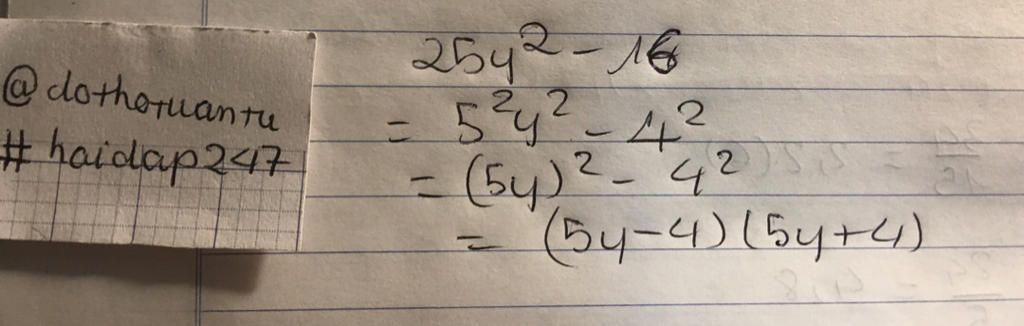 @dothotuantu
#haidap247
25y² - 16
= 5²y² - 4²
= (5y)² - 4²
= (5y-4)(5y+4)